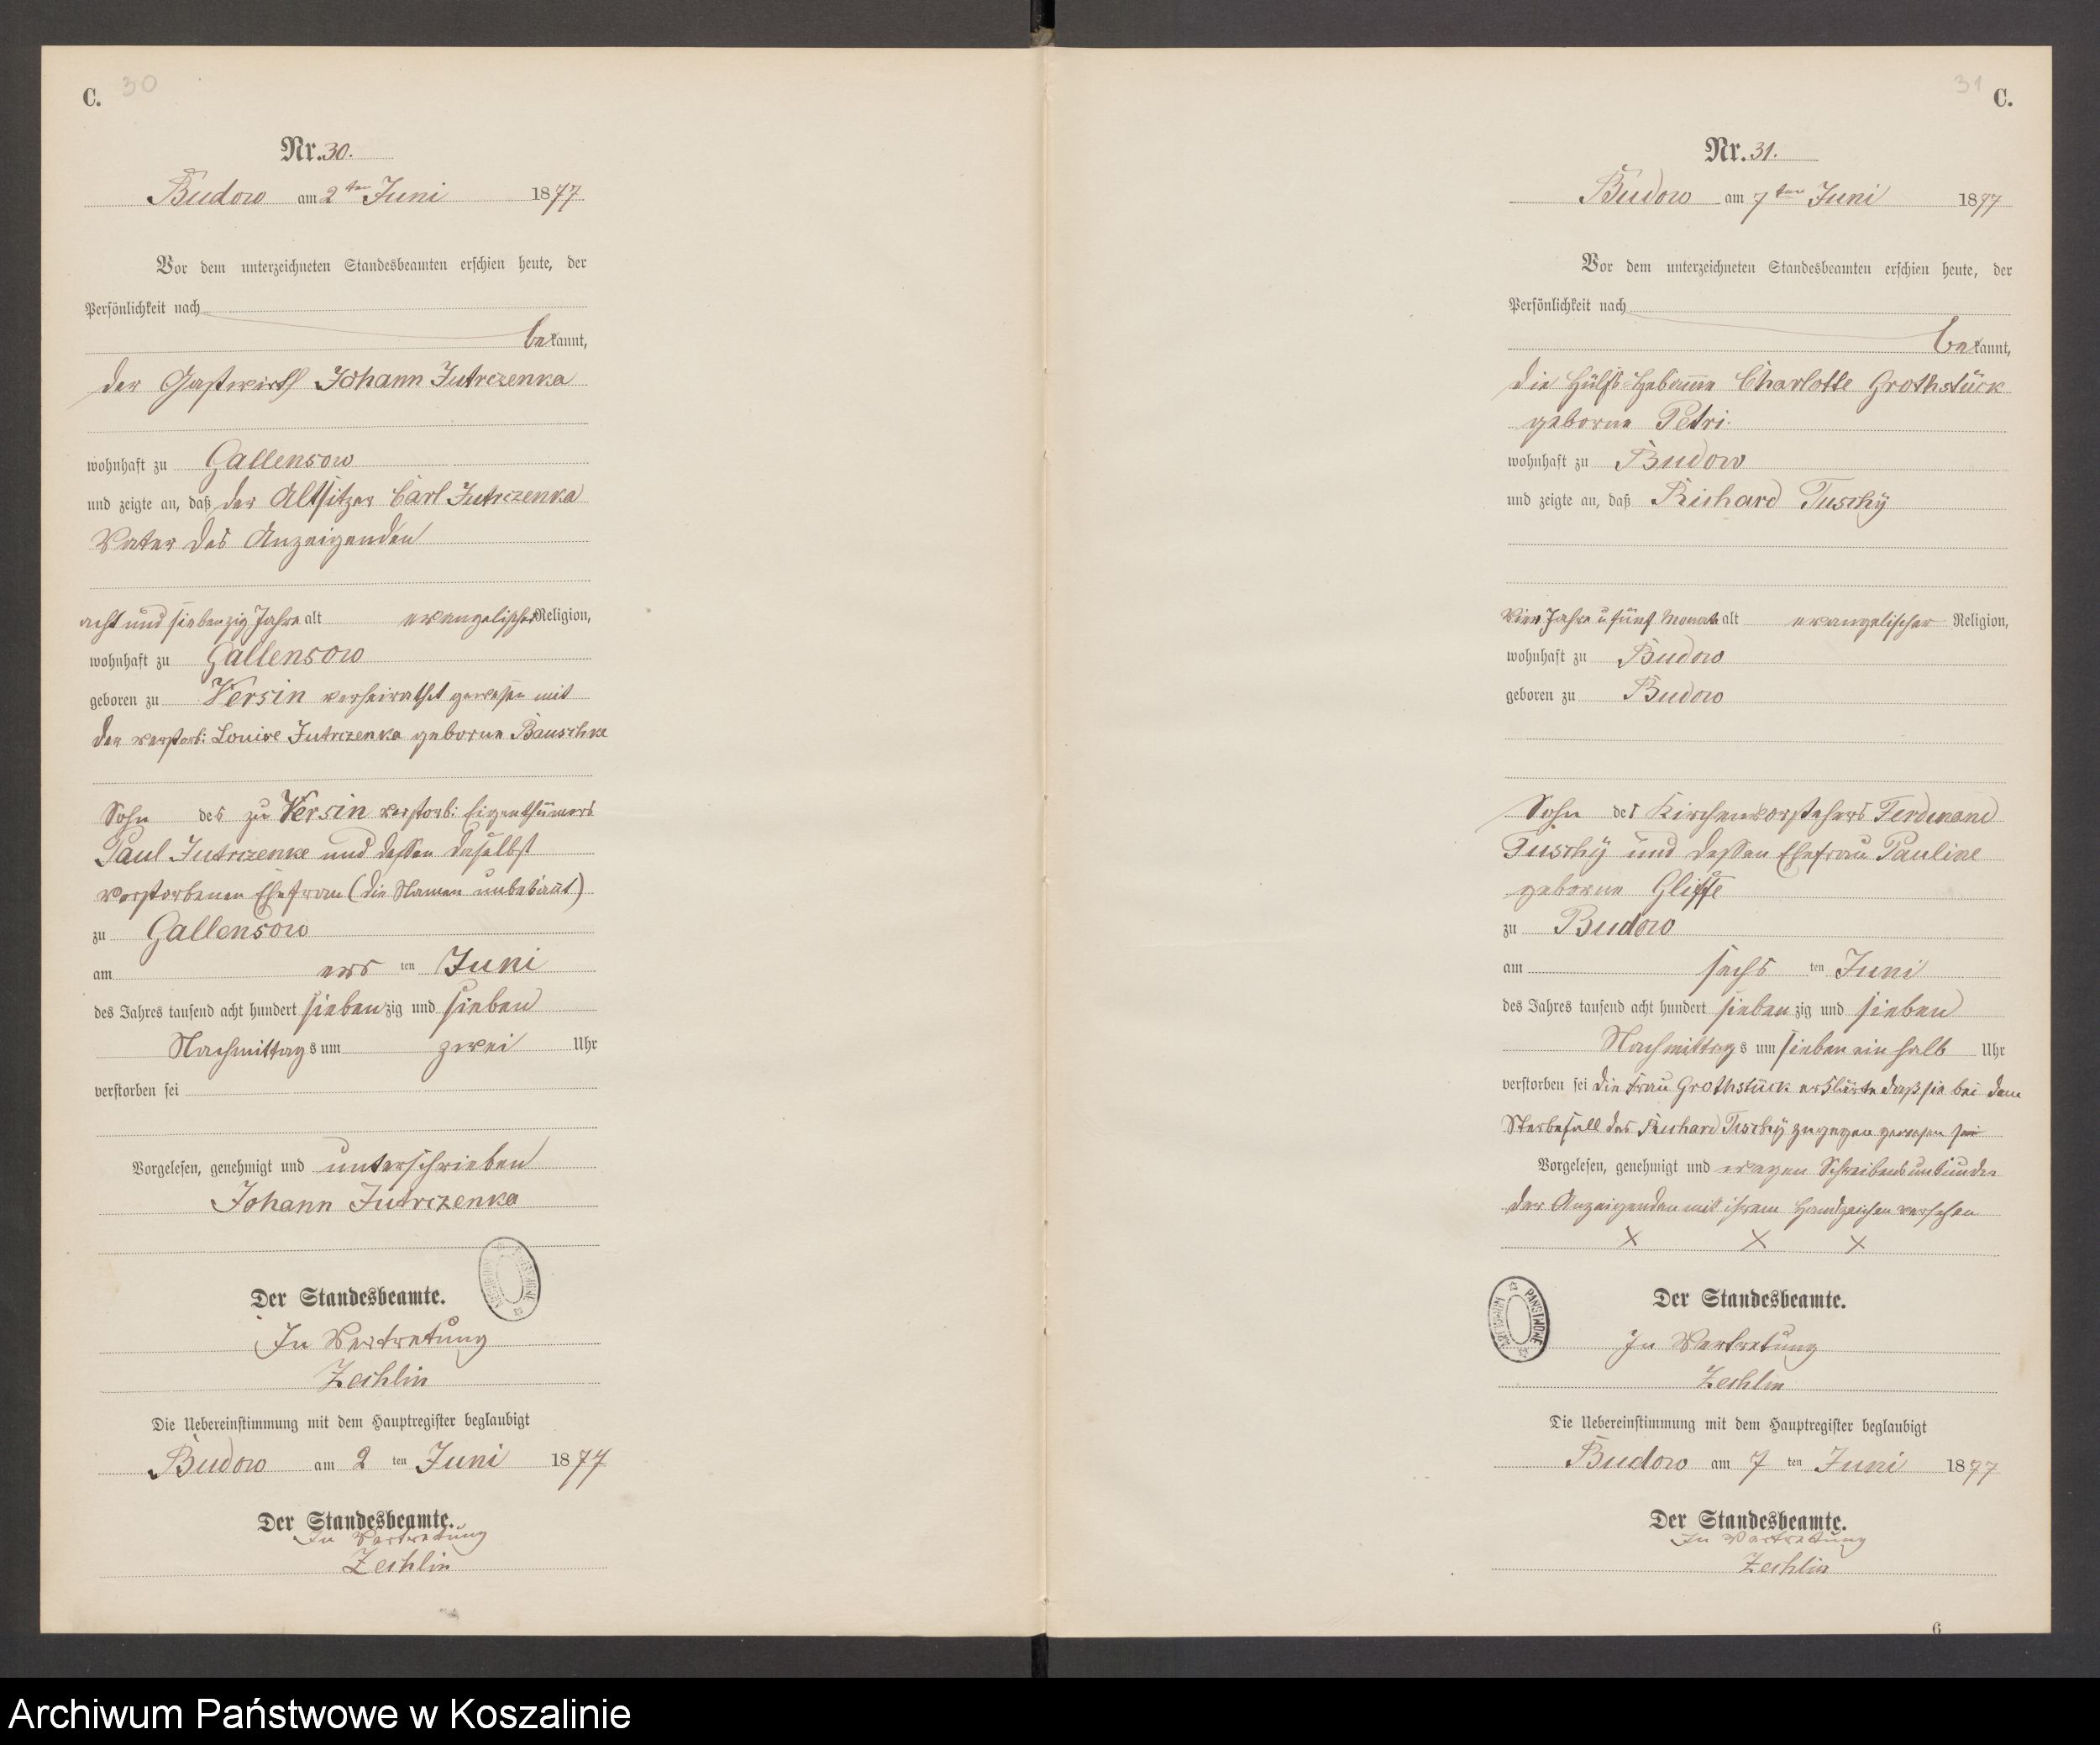 C. 30
Nr. 30.
Budow am 2ten Juni 1877
Vor dem unterzeichneten Standesbeamten erschien heute, der
Persönlichkeit nach
bekannt,
der Gastwirth Johann Jutrczenka
wohnhaft zu Gallensow
und zeigte an, daß der Altsitzer Carl Jutrczenka
Vater des Anzeigenden
acht und siebenzig Jahre alt evangelischer Religion,
wohnhaft zu Gallensow
geboren zu Versin verheirathet gewesen mit
der verstorb: Louise Jutrczenka geborne Bauschke
Sohn des zu Versin verstorb: Eigenthümers
Paul Jutrczenke und dessen daselbst
verstorbenen Ehefrau (die Namen unbekannt)
zu Gallensow
am ers ten Juni
des Jahres tausend acht hundert siebenzig und sieben
Nachmittags um zwei Uhr
verstorben sei
Vorgelesen, genehmigt und unterschrieben
Johann Jutrczenka
Der Standesbeamte.
In Vertretung
Zechlin
Die Uebereinstimmung mit dem Hauptregister beglaubigt
Budow am 2 ten Juni 1877
Der Standesbeamte.
In Vertretung
Zechlin
31 C.
Nr. 31.
Budow am 7ten Juni 1877
Vor dem unterzeichneten Standesbeamten erschien heute, der
Persönlichkeit nach
bekannt,
die Hülfs-Hebamme Charlotte Grothstück
geborne Petri.
wohnhaft zu Budow
und zeigte an, daß Richard Tuschÿ
Vier Jahre u fünf Monate alt evangelischer Religion,
wohnhaft zu Budow
geboren zu Budow
Sohn des Kirchenvorstehers Ferdinand
Tuschÿ und dessen Ehefrau Pauline
geborne
zu Budow
am sechs ten Juni
des Jahres tausend acht hundert siebenzig und sieben
Nachmittags um sieben ein halb Uhr
verstorben sei die Frau Grothstück erklärte daß sie bei dem
Sterbefall des Richard Tuschÿ zugegen gewesen sei
Vorgelesen, genehmigt und wegen Schreibensunkunde
der Anzeigenden mit ihrem Handzeichen versehen
X X X
ARCHIWUM PAŃSTWOWE
Der Standesbeamte.
In Vertretung
Zechlin
Die Uebereinstimmung mit dem Hauptregister beglaubigt
Budow am 7 ten Juni 1877
Der Standesbeamte.
In Vertretung
Zechlin
6
Archiwum Państwowe w Koszalinie